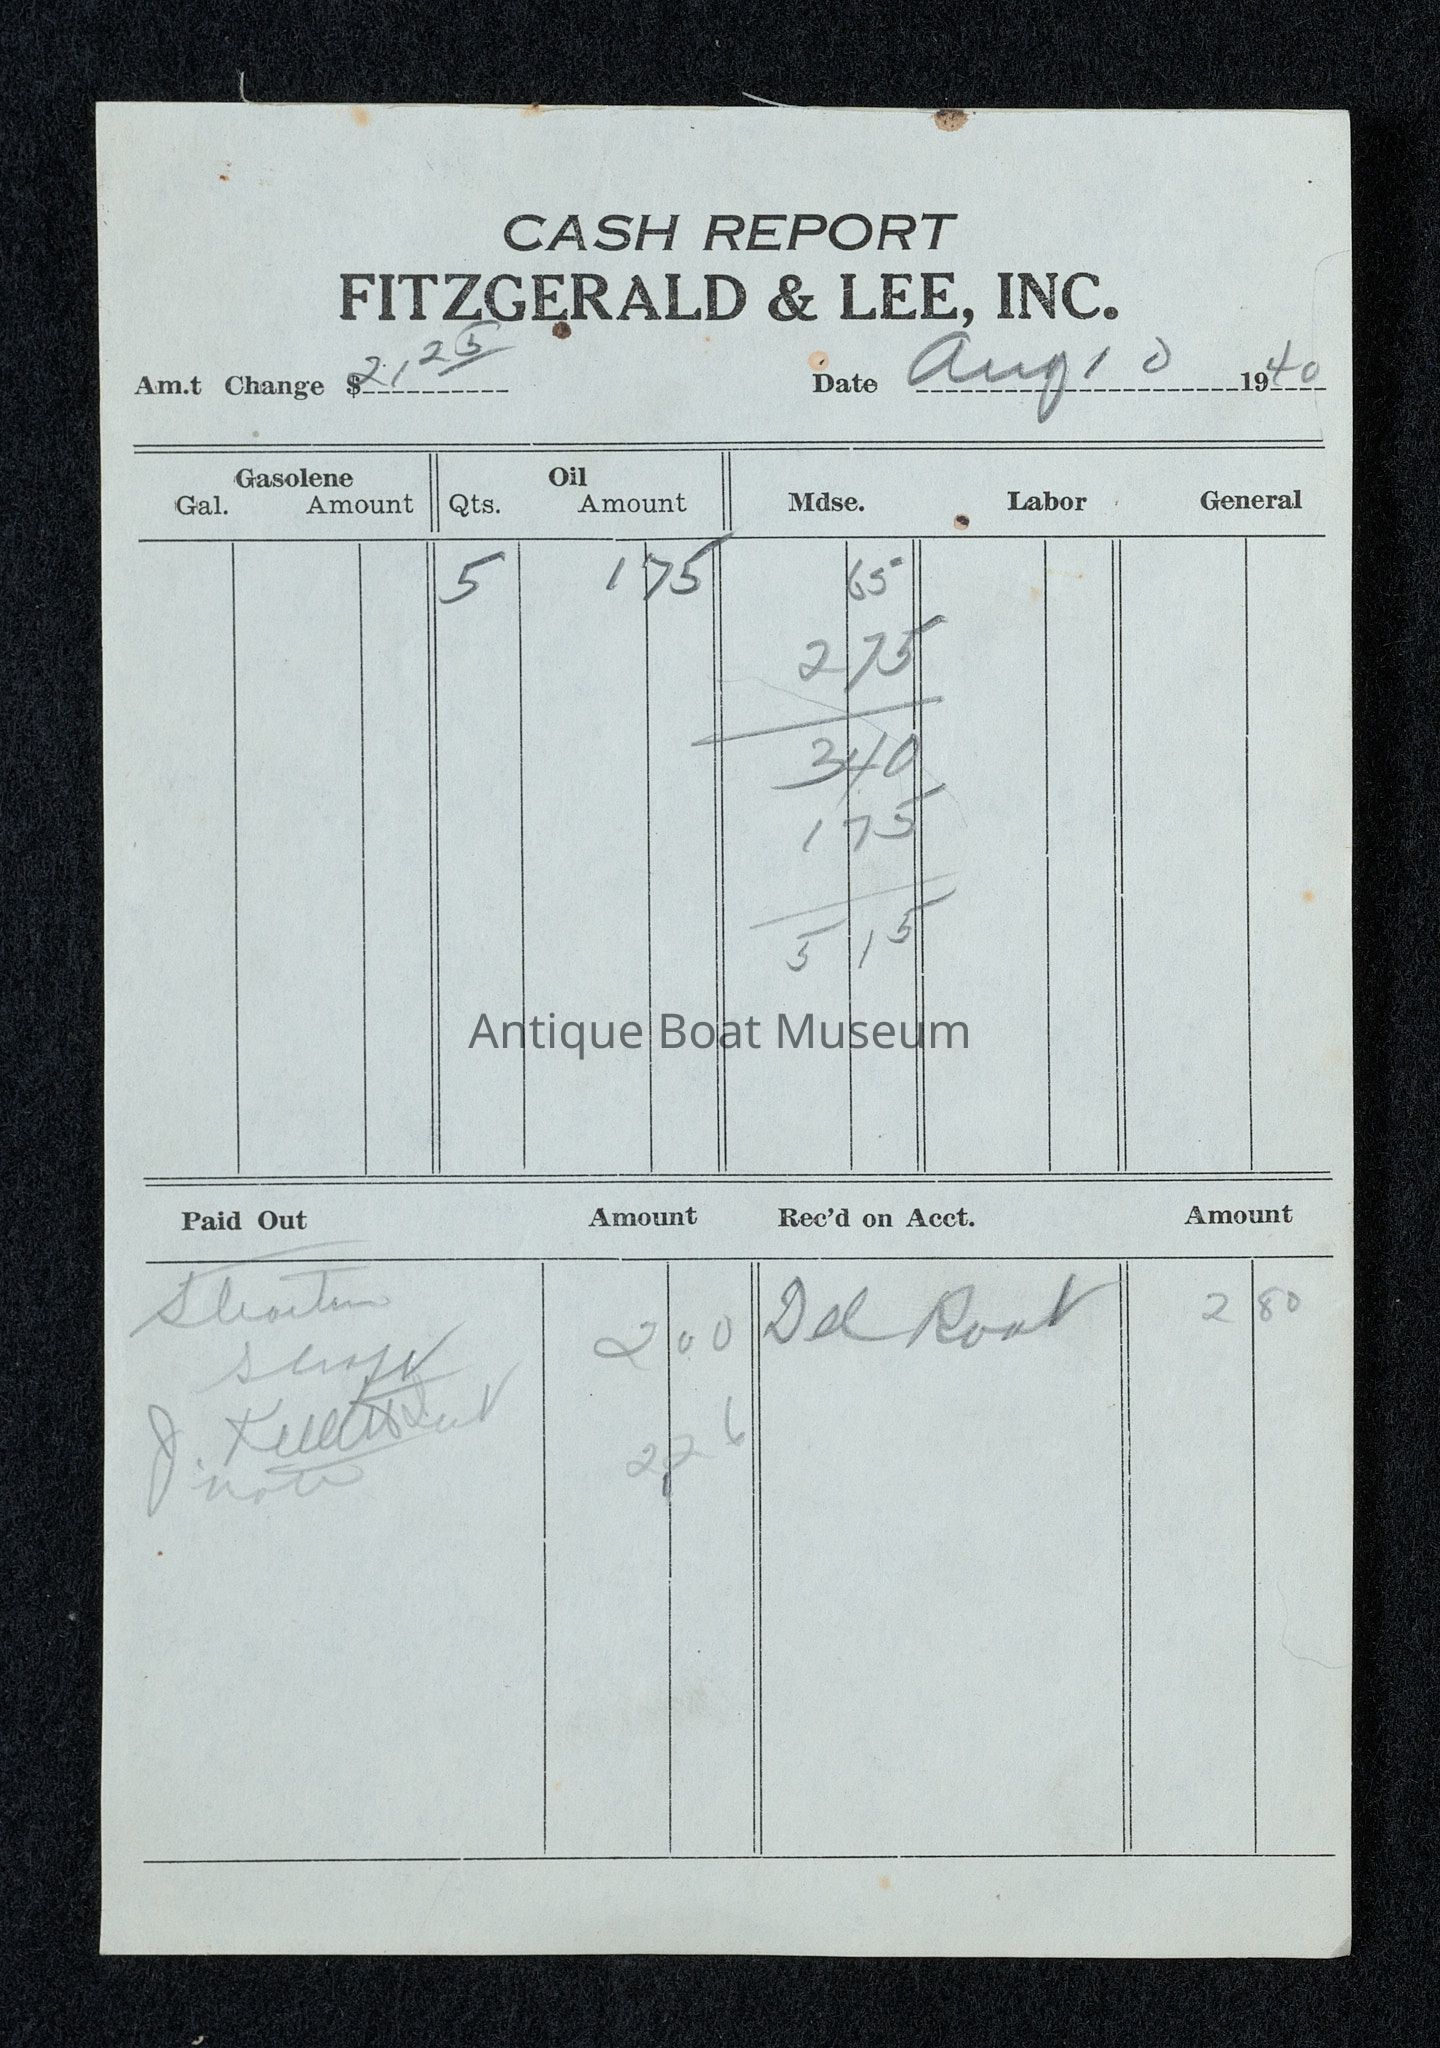 CASH REPORT
FITZGERALD & LEE, INC.
Am.t Change $ 21,25 Date Aug 10 1940
Gasolene Oil
Gal. Amount Qts. Amount Mdse. Labor General
5 175 65
275
340
175
515
Antique Boat Museum
Paid Out Amount Rec'd on Acct. Amount
2 00 Del 2 80
J.
note 2 26